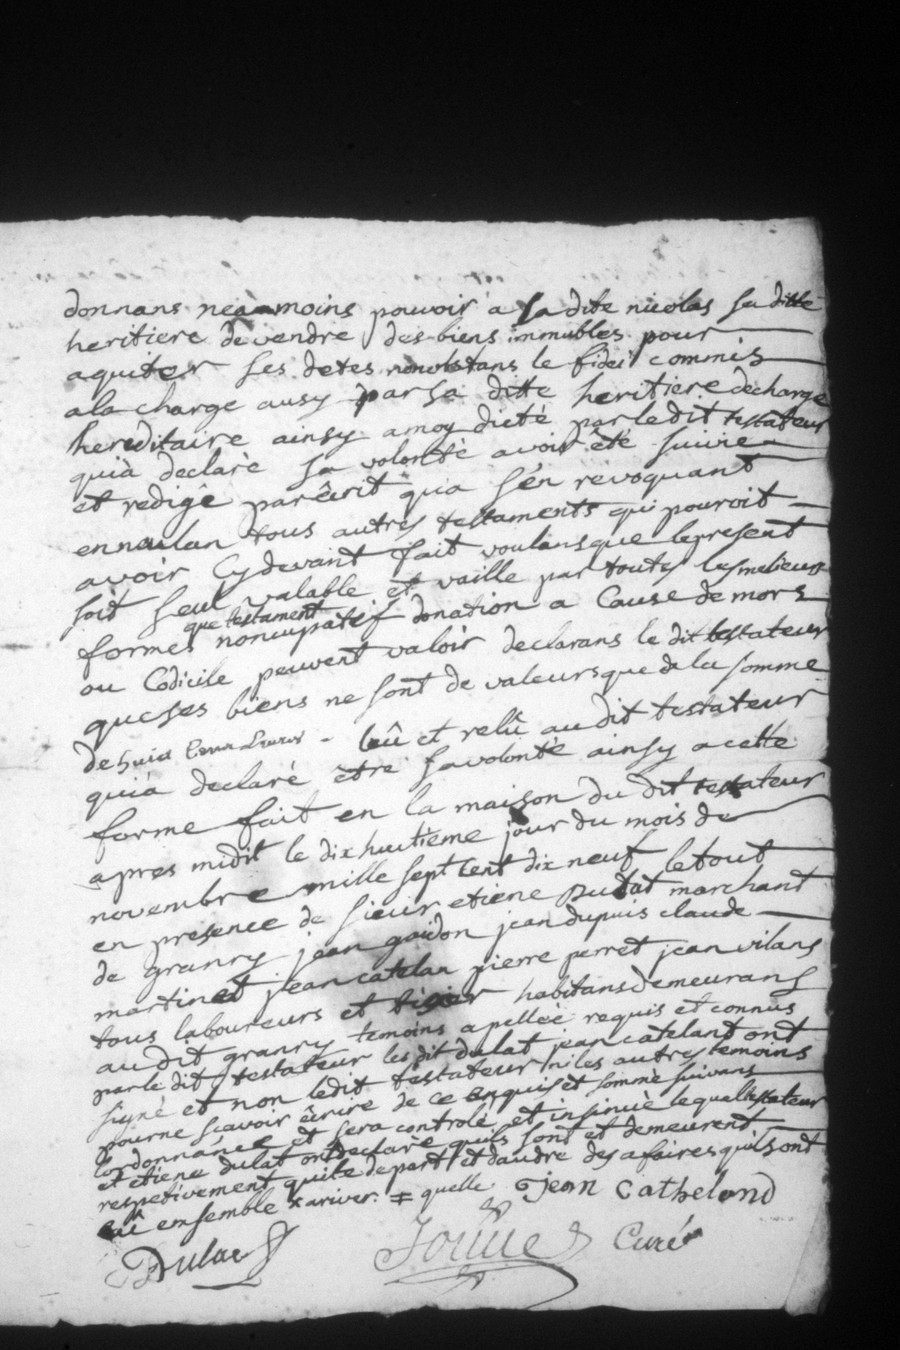 donnans neaamoins pouvoir a sa dite nicolas sa ditte
heritiere de vendre des biens immubles pour
aquiter ses detes nonobstans le fidei commis
a la charge ausy par sa ditte heritiere decharge
hereditaire ainsy a moy dicté par ledit testateur
quia declaré sa volonté avoir été suivie
et redigé par êcrit qua s'en revoquant
ennulan tous autres testaments qui pouroit
avoir cy devant fait voulans que lepresent
soit seul valable et vaille par toutes les melieurs
que testament
formes noncupatif donation a Cause de mors
ou Codicile peuvent valoir declarans le dit testateur
que ses biens ne sont de valeurs que de la somme
de huit livres - lû et relû audit testateur
quia declaré être sa volonté ainsy a cette
forme fait en la maison du dit testateur
apres midit le dix huitieme jour du mois de
novembre mille sept cent dix neuf le tout
en presence de sieur etiene Dulat marchand
de granry jean gaidon jean dupuis claude
martin et jean catelan pierre perret jean vilans
tous laboureurs et habitans demeurans
au dit granry temoins apelleé requis et connus
par le dit testateur les dit dulat jean catelant ont
signé et non ledit testateur ni les autres temoins
pour ne scavoir êcrire de ce enquis et sommé suivans
lordonnance et sera controlé et insinué le quel testateur
et etiene dulat ont declaré quils sont et demeurent
respetivement quite de part et daudre des afaires quils ont
eû ensemble x ariver. ≠ quelle Jean Catheland
Dulac Jouue Curé